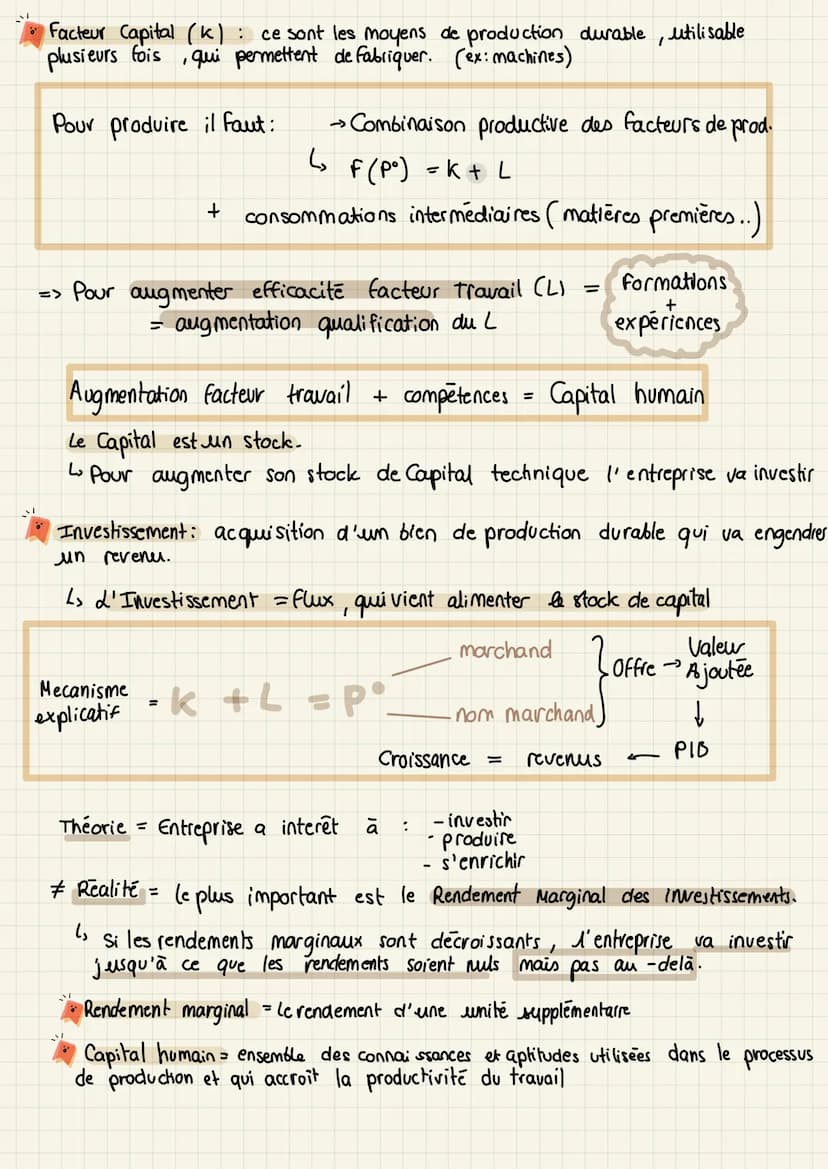 Facteur Capital (K) : ce sont les moyens de production durable, utilisable
plusieurs fois, qui permettent de fabriquer. (ex: machines)
Pour produire il faut : → Combinaison productive des facteurs de prod.
↳ F(P°) = K + L
+ consommations intermédiaires (matières premières..)
=> Pour augmenter efficacité facteur Travail (L) = formations
+
= augmentation qualification du L expériences
Augmentation facteur travail + compētences = Capital humain
Le Capital est un stock.
↳ Pour augmenter son stock de Capital technique l'entreprise va investir
Investissement : acquisition d'un bien de production durable qui va engendrer
un revenu.
↳ L'Investissement = flux, qui vient alimenter le stock de capital
marchand
Mecanisme explicatif = K + L = P° } Offre → Valeur Ajoutée
nom marchand ↓
Croissance = revenus ← PIB
Théorie = Entreprise a interêt ā : - investir
- produire
- s'enrichir
≠ Réalité = le plus important est le Rendement Marginal des investissements.
↳ Si les rendements marginaux sont décroissants, l'entreprise va investir
jusqu'à ce que les rendements soient nuls mais pas au-delà.
Rendement marginal = le rendement d'une unité supplémentaire
Capital humain = ensemble des connaissances et aptitudes utilisées dans le processus
de production et qui accroît la productivité du travail